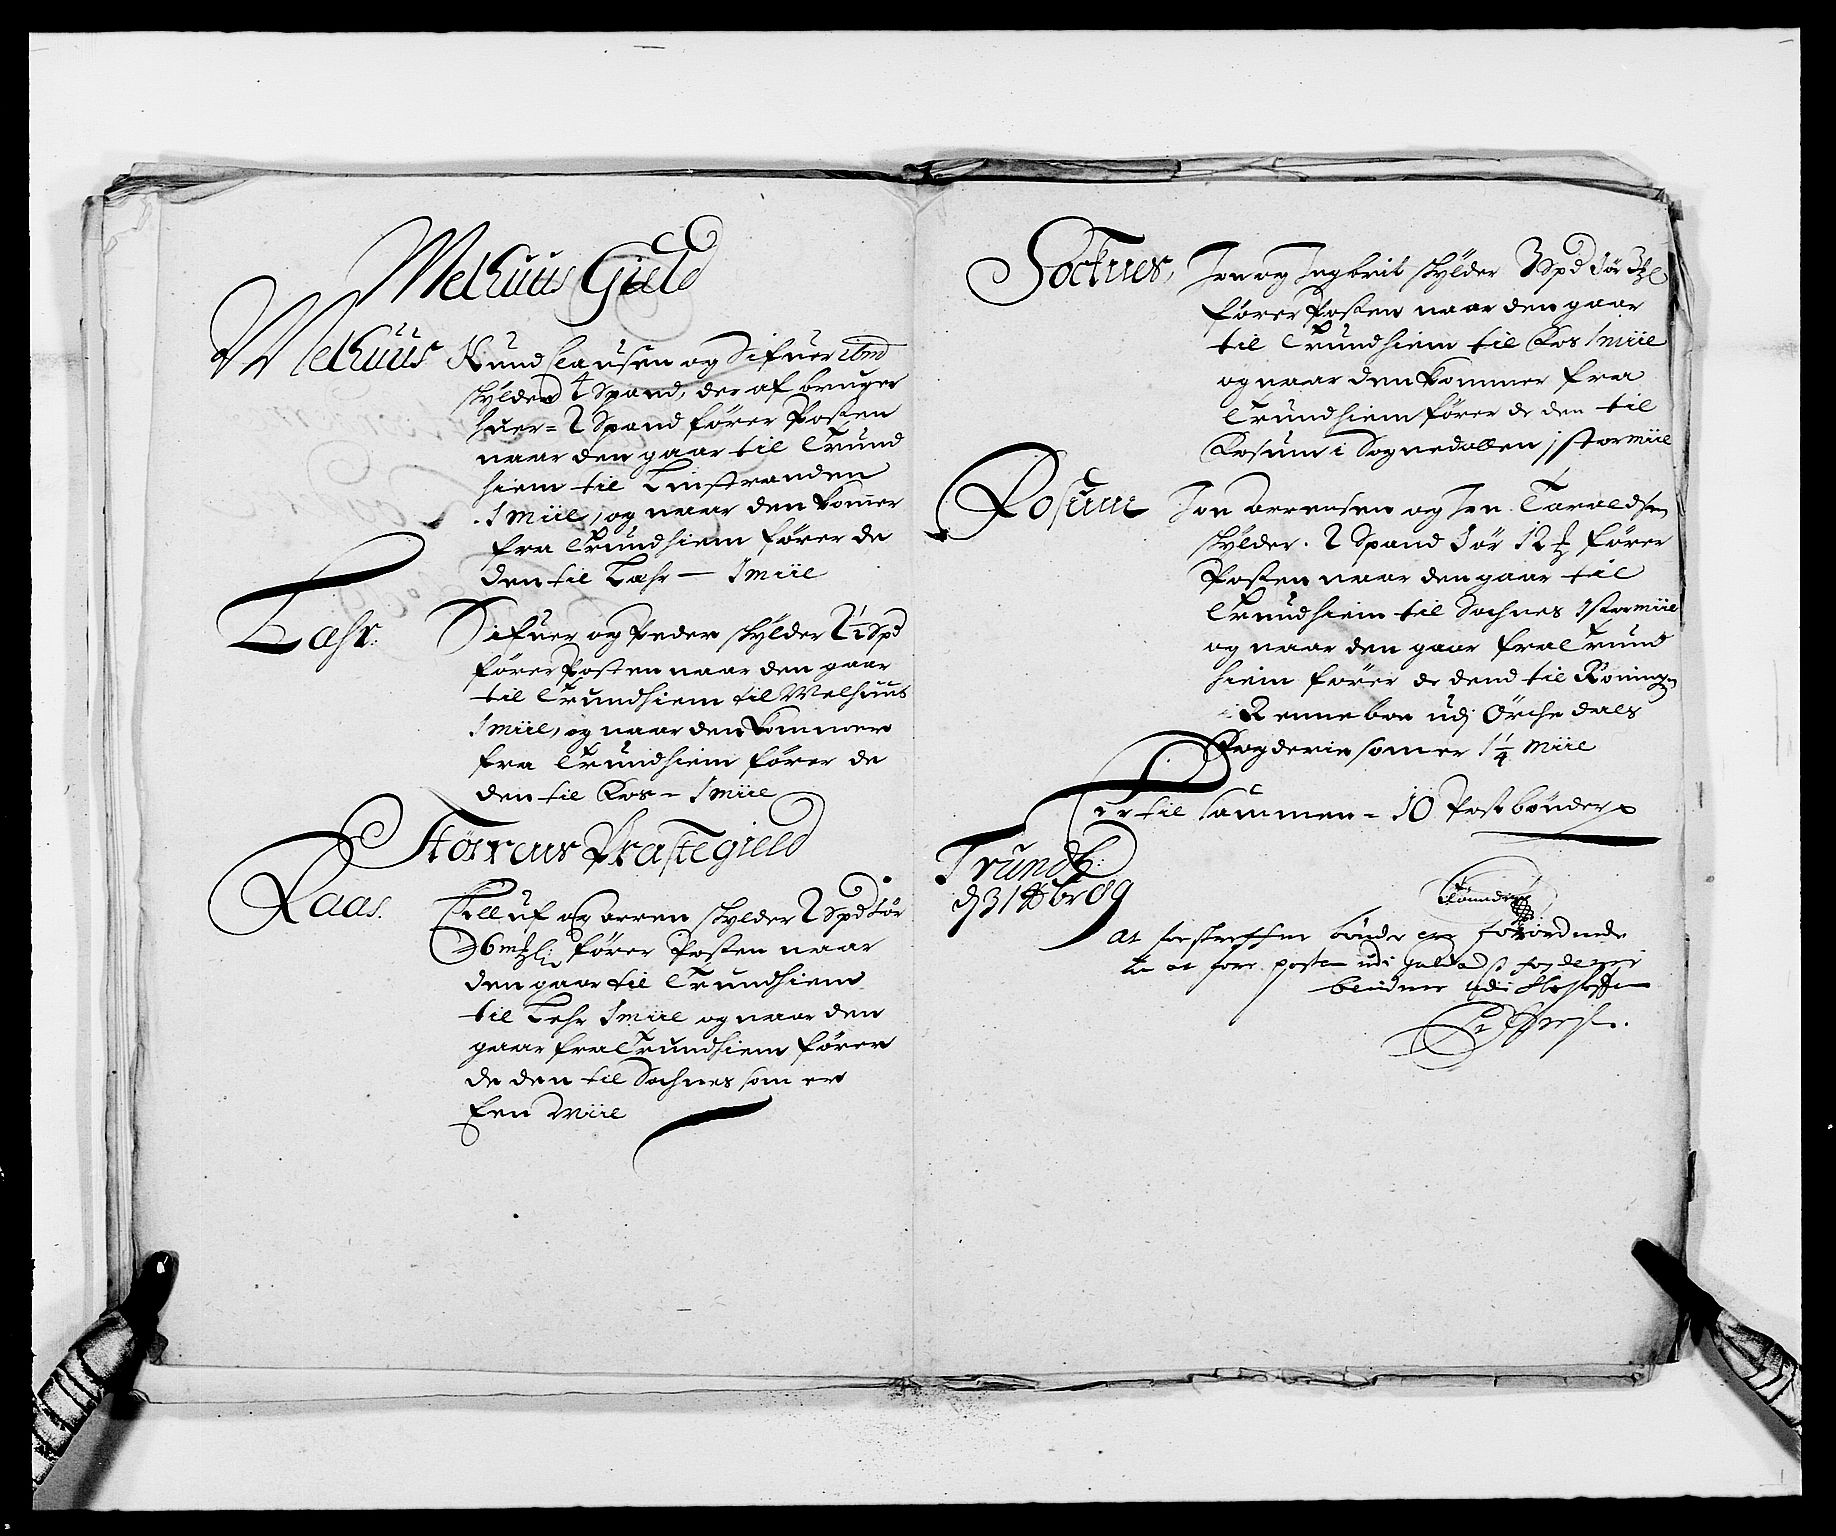 Melhuus Gield
Melhuus Knud Clausen og Sifuer ibmd
skylder 4 Spand, der af bruger
huer = 2 Spand fører Posten
naar den gaar til Trund
hiem til Leinstranden
1 Miil, og naar den komer
fra Trundhiem fører de
den til Lahr — 1 miil
Lahr. Sifuer og Peder skylder 2 1/2 Spd
fører Posten naar den gaar
til Trundhiem til Melhuus
1 miil, og naar den kommer
fra Trundhiem fører de
den til Roos — 1 miil
Størens Præstegield
Raas. Elluf og Arren skylder 2 Spd 1 ør
6 mkl: fører Posten naar
den gaar til Trundhiem
til Lehr 1 miil og naar den
gaar fra Trundhiem fører
de den til Sochnes som er
Een Miil
Socknes, Jon og Ingbrit skylder 3 Spd 1 ør
fører Posten naar den gaar
til Trundhiem til Roos 1 miil
og naar den kommer fra
Trundhiem fører de den til
Rosum i Sognedallen 1 stor miil
Rosum Jon Arensen og Jon Taraldsen
skylder 2 Spand 1 ør 12 fører
Posten naar den gaar til
Trundhiem til Sochnes 1 stor miil
og naar den gaar fra Trund
hiem fører de dend til Røningen
i Renneboe udj Ørchedals
Fogderie som er 1 1/4 Miil
Er til sammen = 10 Postbønder
Trundh:
d 31 Xbr 89
At forskrefne bønder ere forordnede
til at føre posten udi